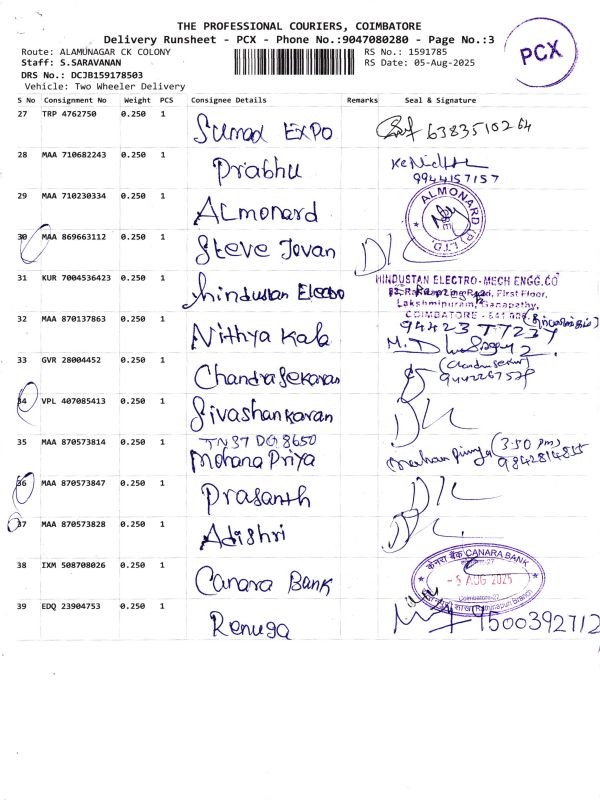 THE PROFESSIONAL COURIERS, COIMBATORE
Delivery Runsheet - PCX - Phone No.:9047080280 - Page No.:3
Route: ALAMUNAGAR CK COLONY
RS No.: 1591785
Staff: S.SARAVANAN
RS Date: 05-Aug-2025
DRS No.: DCJB159178503
Vehicle: Two Wheeler Delivery
PCX
S No Consignment No Weight PCS Consignee Details Remarks Seal & Signature
27 TRP 4762750 0.250 1 Sumad EXPO 6383510264
28 MAA 710682243 0.250 1 Prabhu
9944157157
29 MAA 710230334 0.250 1 ALmonard
ALMONARD (P) LTD.
30 MAA 869663112 0.250 1 Steve Jovan DL
31 KUR 7004536423 0.250 1 hindustan Electro
HINDUSTAN ELECTRO-MECH ENGG.CO
Road, First Floor,
Lakshmipuram, Ganapathy,
COIMBATORE - 641 006
32 MAA 870137863 0.250 1 Nithya Kala 94423 77237
33 GVR 28004452 0.250 1 Chandrasekaran
34 VPL 407085413 0.250 1 Sivashankaran DL
TN37 DQ 8650
35 MAA 870573814 0.250 1 Mohana Priya (3.50 Pm)
9842814855
36 MAA 870573847 0.250 1 Prasanth DL
37 MAA 870573828 0.250 1 Adishri DL
38 IXM 508708026 0.250 1 Canara Bank
केनरा बैंक CANARA BANK
- 5 AUG 2025
Coimbatore-27
Rathinapuri Branch
39 EDQ 23904753 0.250 1 Renuga 7500392712